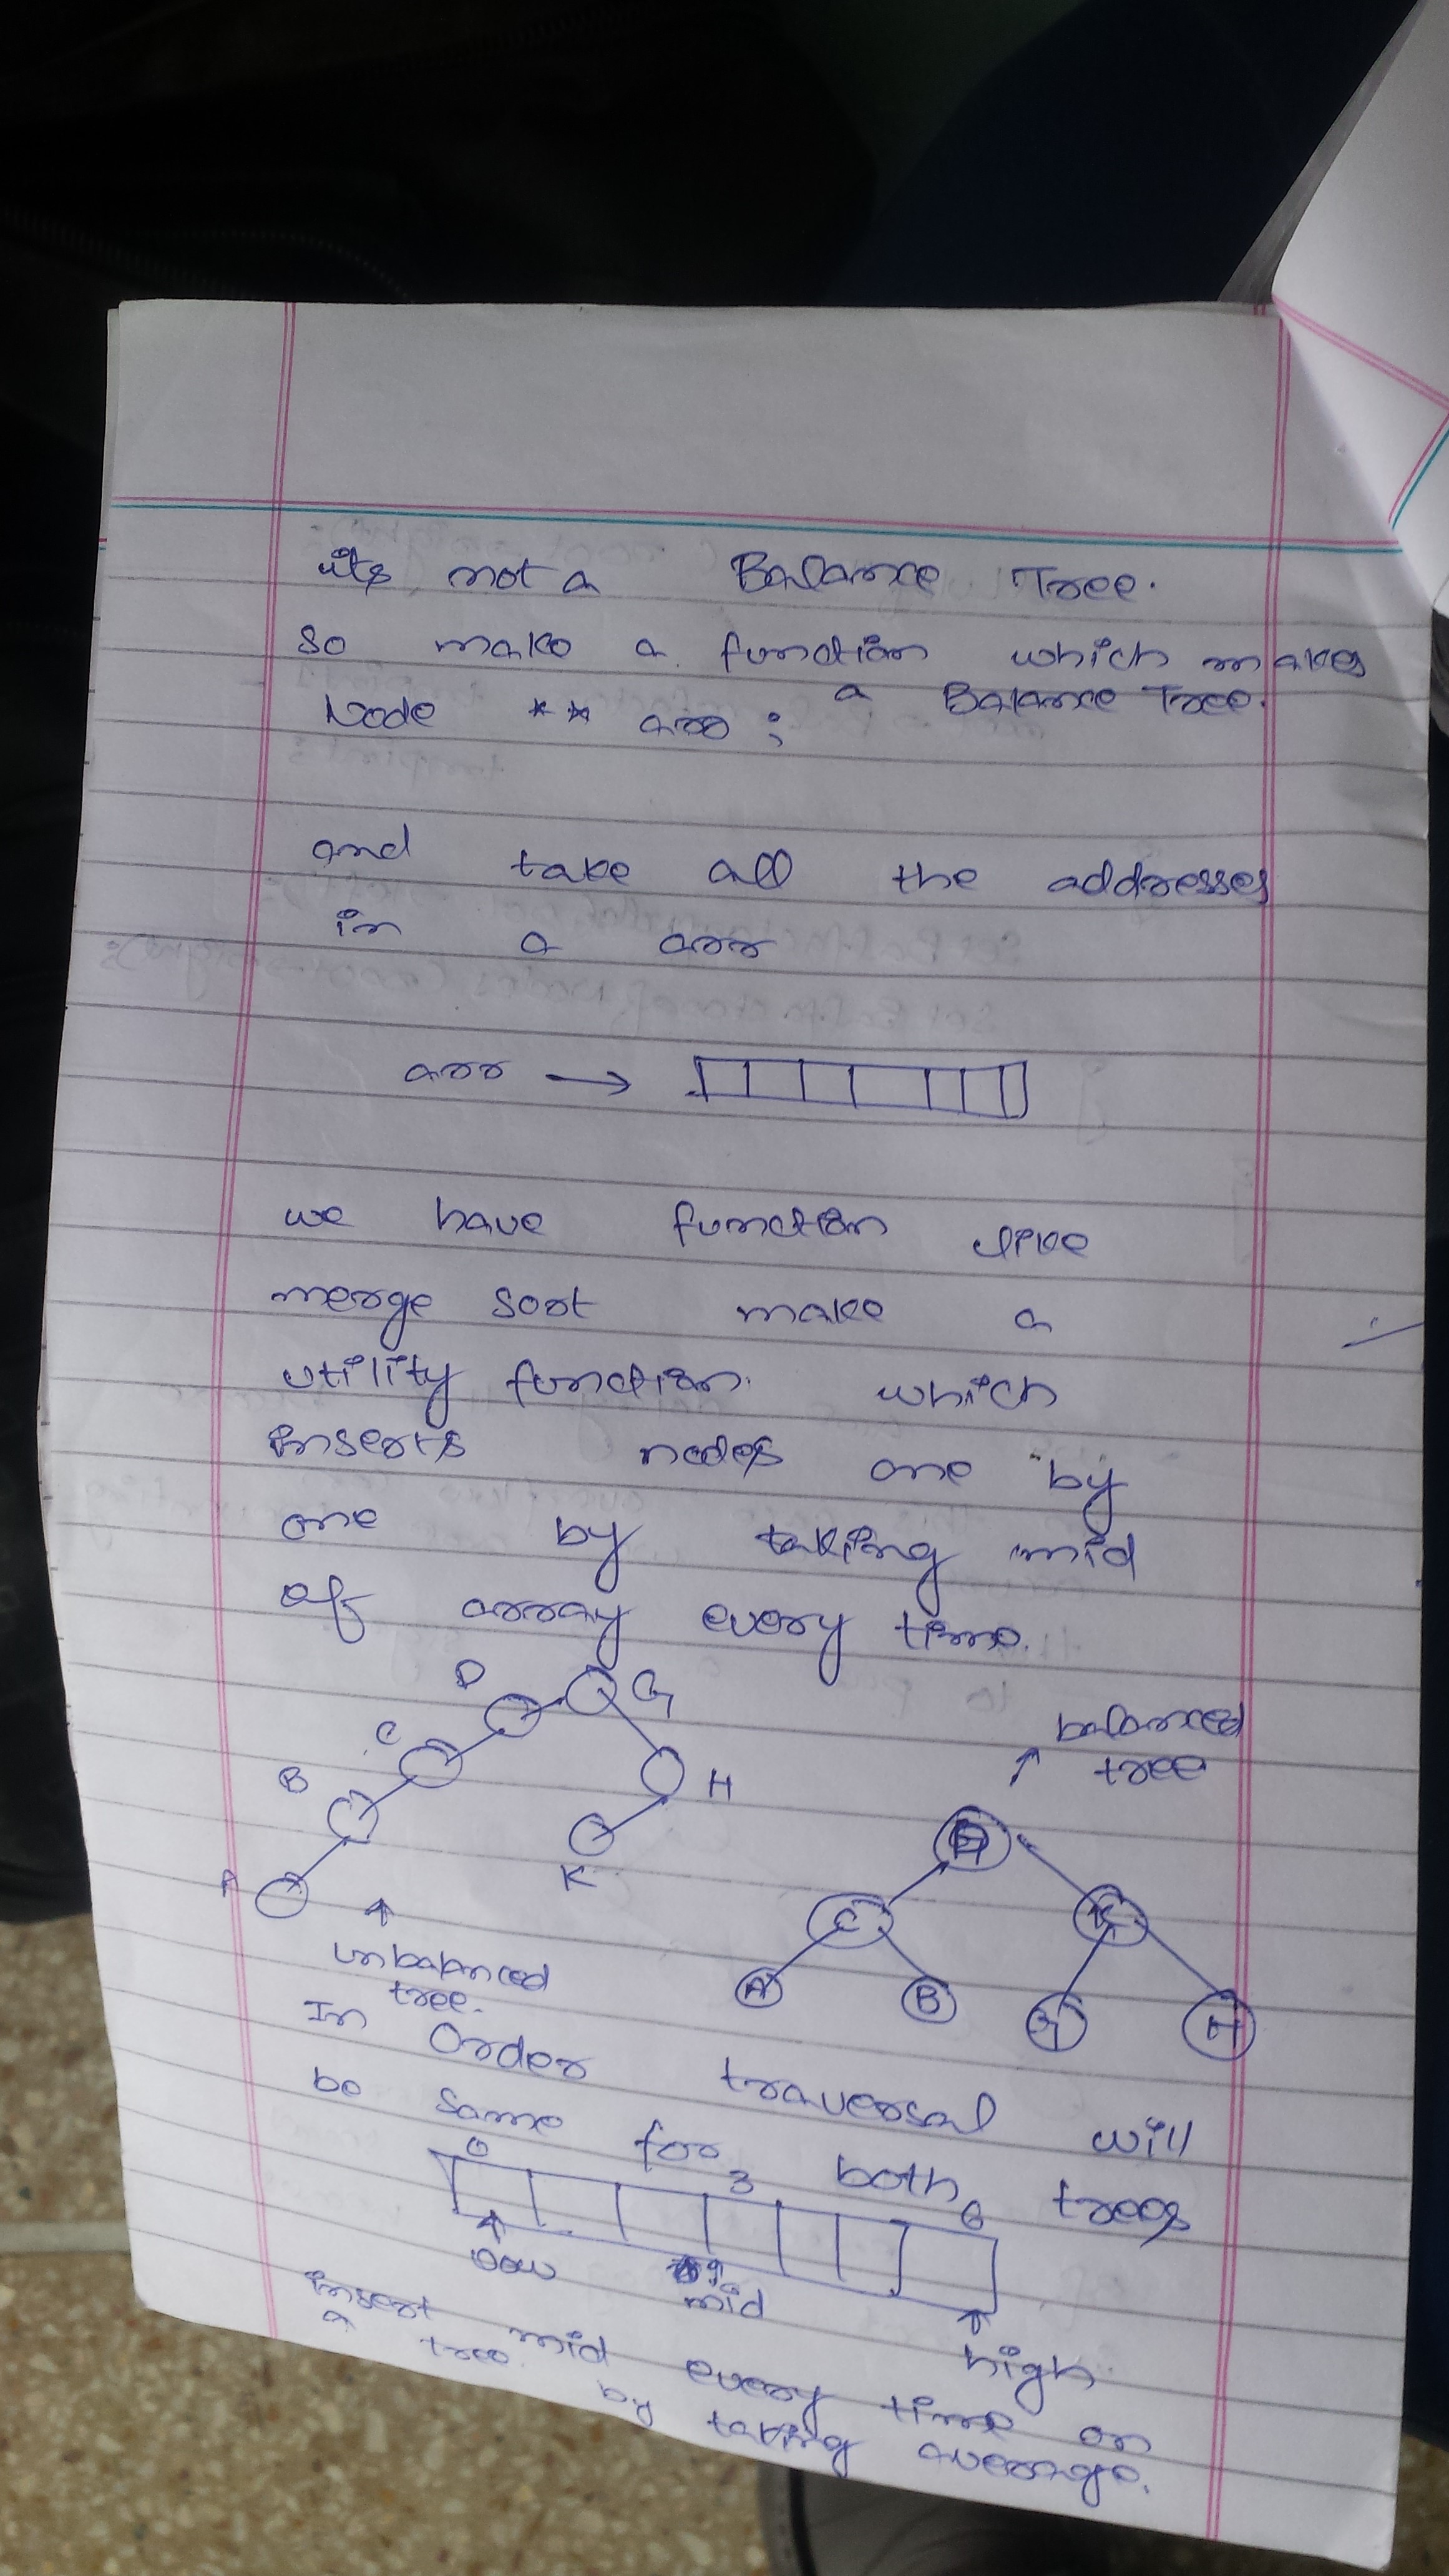 its not a Balance Tree.
so make a function which makes
a Balance Tree.
Node ** arr ;
and take all the addresses
in a arr
arr →
we have function like
merge sort make a
utility function. which
inserts nodes one by
one by taking mid
of array every time.
D G
C
B H
K
A
↑
unbalanced
tree.
balanced
↑ tree
D
C K
A B G H
In Order traversal will
be same for both trees
0 3 6
low mid high
insert mid every time on
a tree. by taking average.